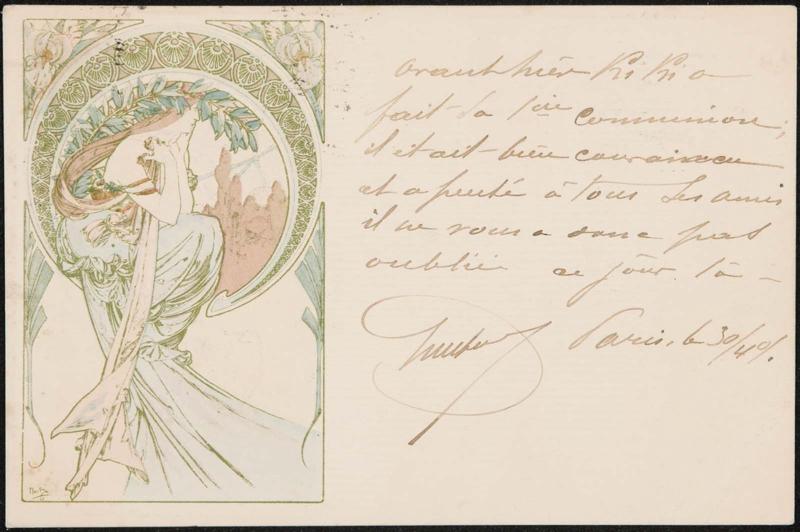 avant hier KiKi a
fait sa 1ère communion;
il était bien
et a pensé à tous ses amis
il ne vous a donc pas
oublié ce jour là —
Paris, le 30/4 01.